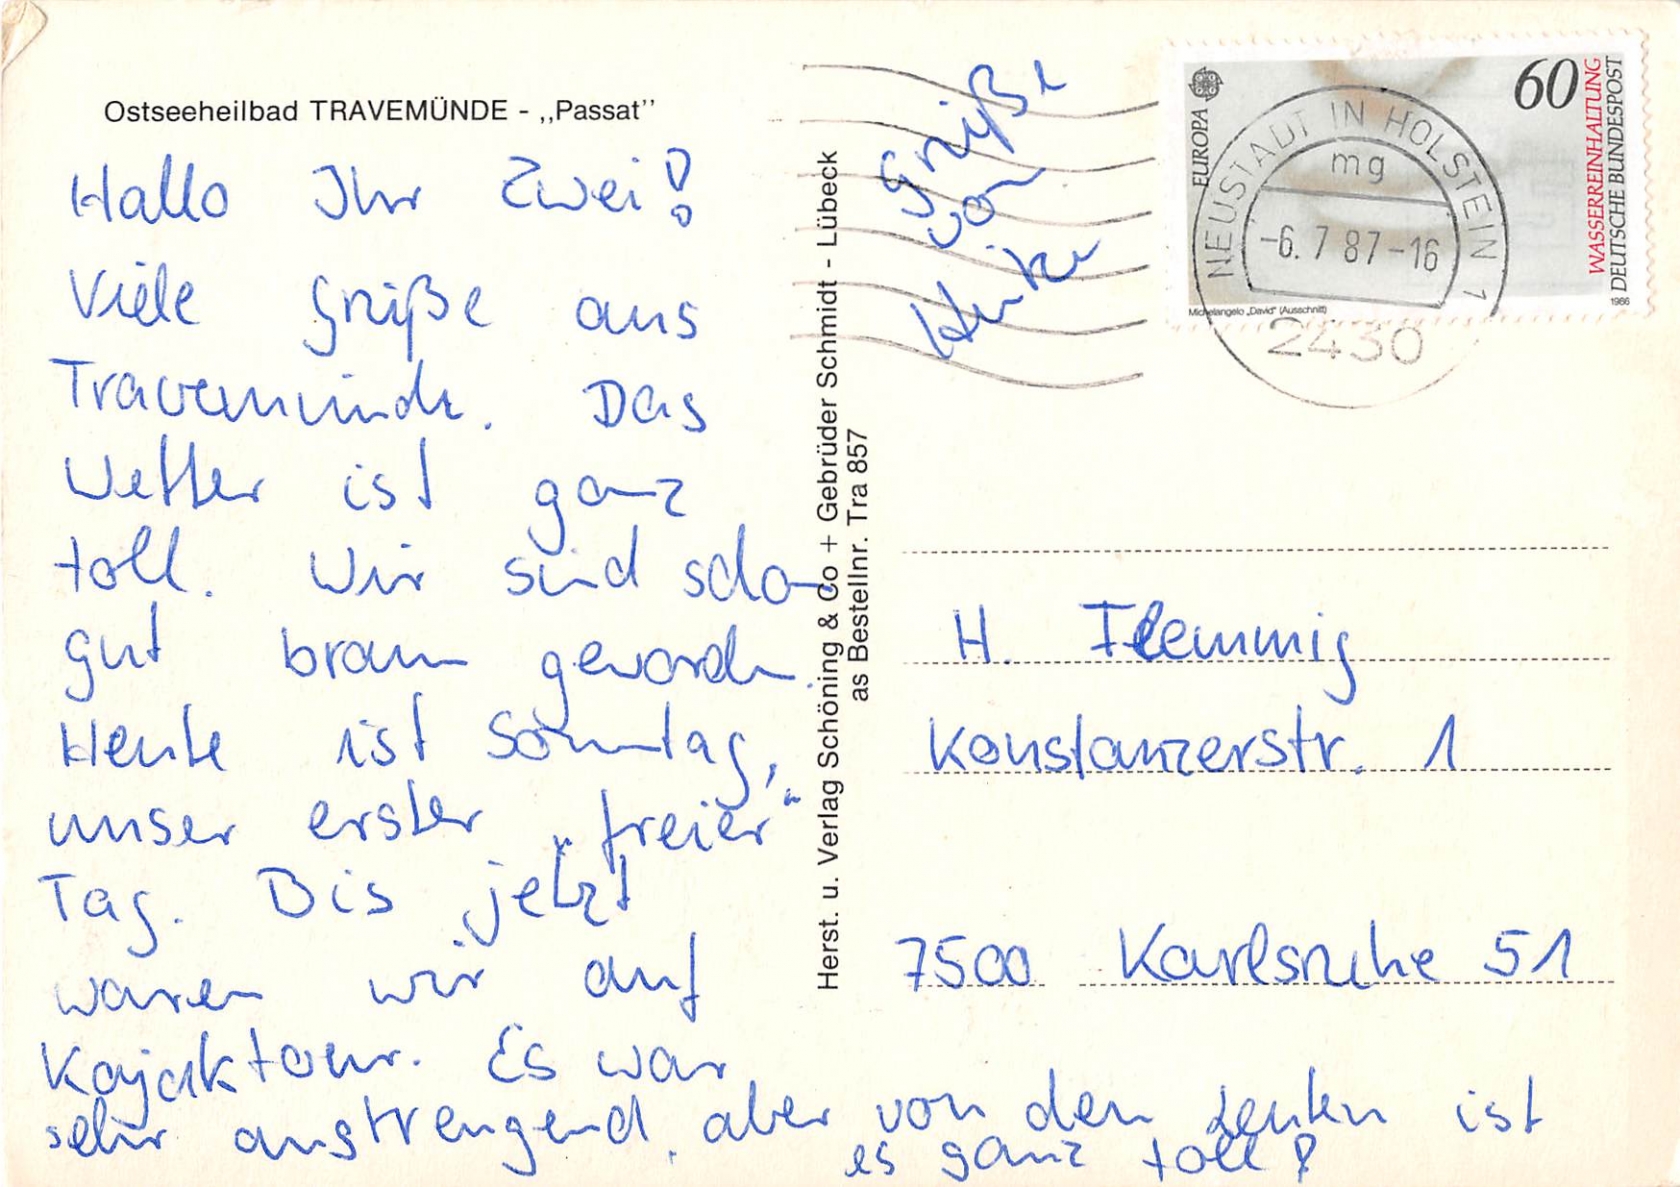 Ostseeheilbad TRAVEMÜNDE - ,,Passat''
Hallo Ihr Zwei!
Viele Grüße aus
Travemünde. Das
Wetter ist ganz
toll. Wir sind schon
gut braun geworden.
Heute ist Sonntag,
unser erster „freier"
Tag. Bis jetzt
waren wir auf
Kajaktour. Es war
sehr anstrengend, aber von den Leuten ist
es ganz toll!
Herst. u. Verlag Schöning & Co + Gebrüder Schmidt - Lübeck
as Bestellnr. Tra 857
Grüße
von
Heike
EUROPA
60
WASSERREINHALTUNG
DEUTSCHE BUNDESPOST
1986
Michelangelo „David" (Ausschnitt)
NEUSTADT IN HOLSTEIN 1
mg
-6. 7 87-16
2430
H. Flemmig
Konstanzerstr. 1
7500 Karlsruhe 51